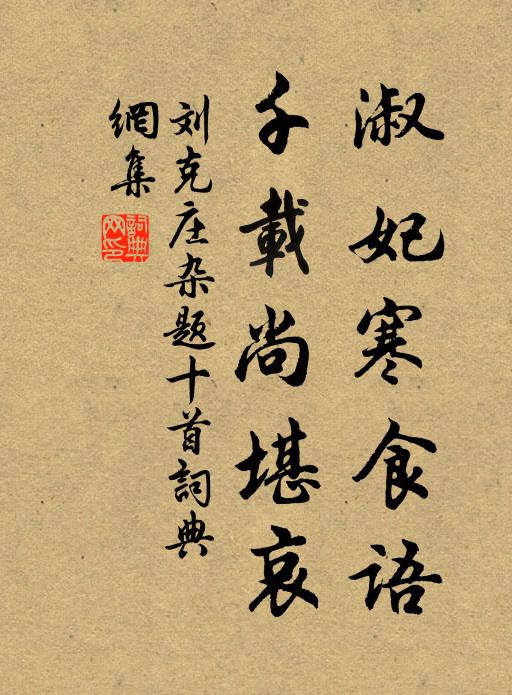 淑妃寒食語
千載尚堪哀
刘克庄杂题十首詞典
網集
詞典网印